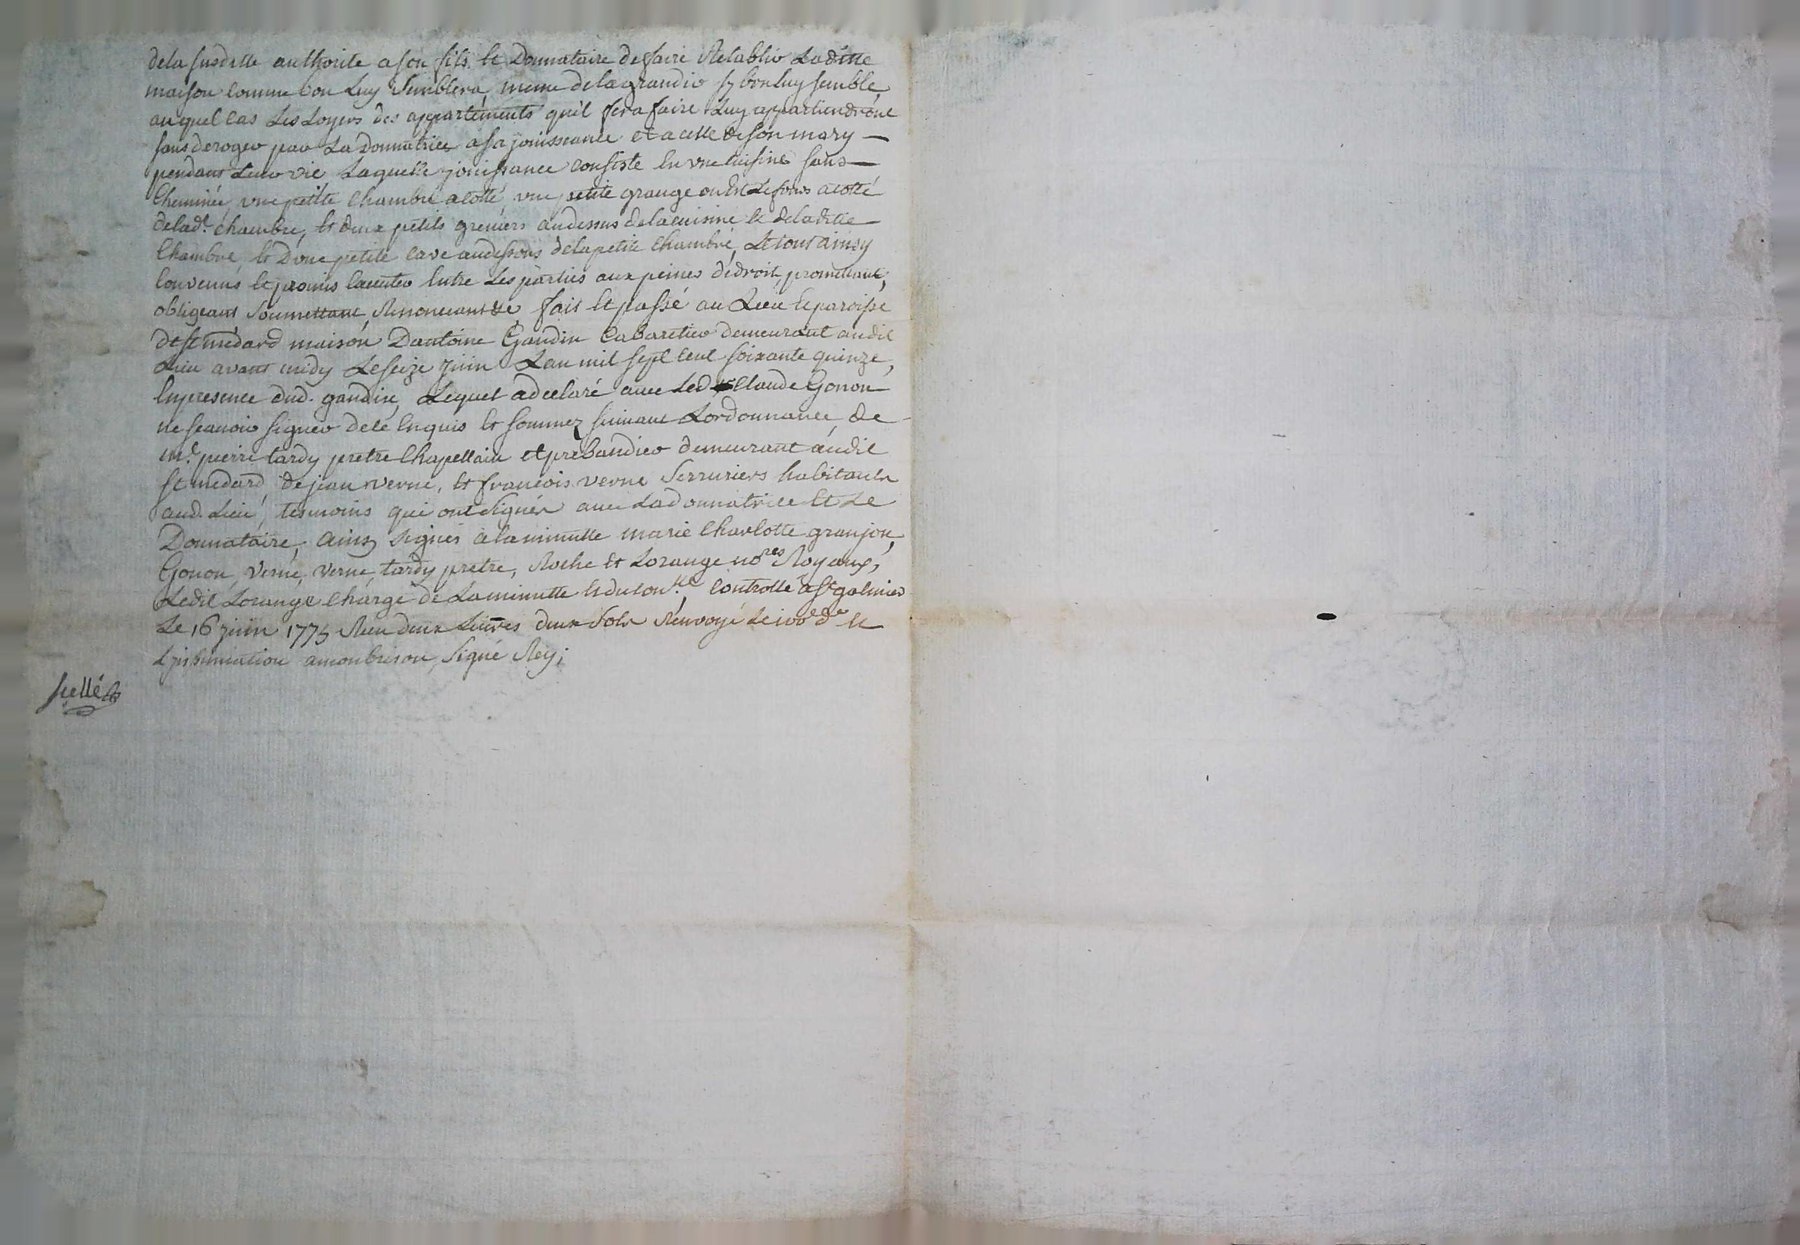 de la susdette authorité a son fils et Donnataire de faire Retablir Laditte
maison comme bon Luy Semblera, meme de lagrandir sy bon luy semble,
auquel cas Les Loyers des appartements qu'il fera faire Luy appartiendront
sans deroger par La donnatrice a sa jouissance et a celle de son mary —
pendant Leur vie Laquelle jouissance consiste en une cuisine sans —
cheminée, une petite chambre a cotté, une petite grange ou Est Le four a cotté
de lad.e chambre, et deux petits greniers audessus de la cuisine et de laditte —
chambre, et Dune petite cave audessous de la petite chambre, Le tout ainsy
convenus et promis Entre Les parties aux peines de droit, promettant,
obligeant Soumettant, Renonceant &c, fait et passé au Lieu et paroisse
de st medard maison Dantoine Gaudin Cabaretier demeurant audit
Lieu avant midy Le seize juin Lan mil sept cent soixante quinze,
En presence dud. gaudin, Lequel a declaré avec Led. Claude Gonon
ne scavoir signer de ce Enquis et sommez suivant Lordonnance, de
m.e pierre tardy pretre chapellain et prebandier demeurant audit
st medard, de jean verne, et francois verne Serruriers habitants
aud. Lieu, tesmoins qui ont signés avec La donnatrice et Le
Donnataire, ainsy signés a la minutte marie charlotte granjon,
Gonon, verne, verne, tardy pretre, Roche et Lorange no.res Royaux,
Ledit Lorange chargé de La minutte controllé a st galmier
Le 16 juin 1775 Reçu deux Livres deux sols Renvoyé le 100.e d.er et
Linsinuation a monbrison, signé Rey;
scellé